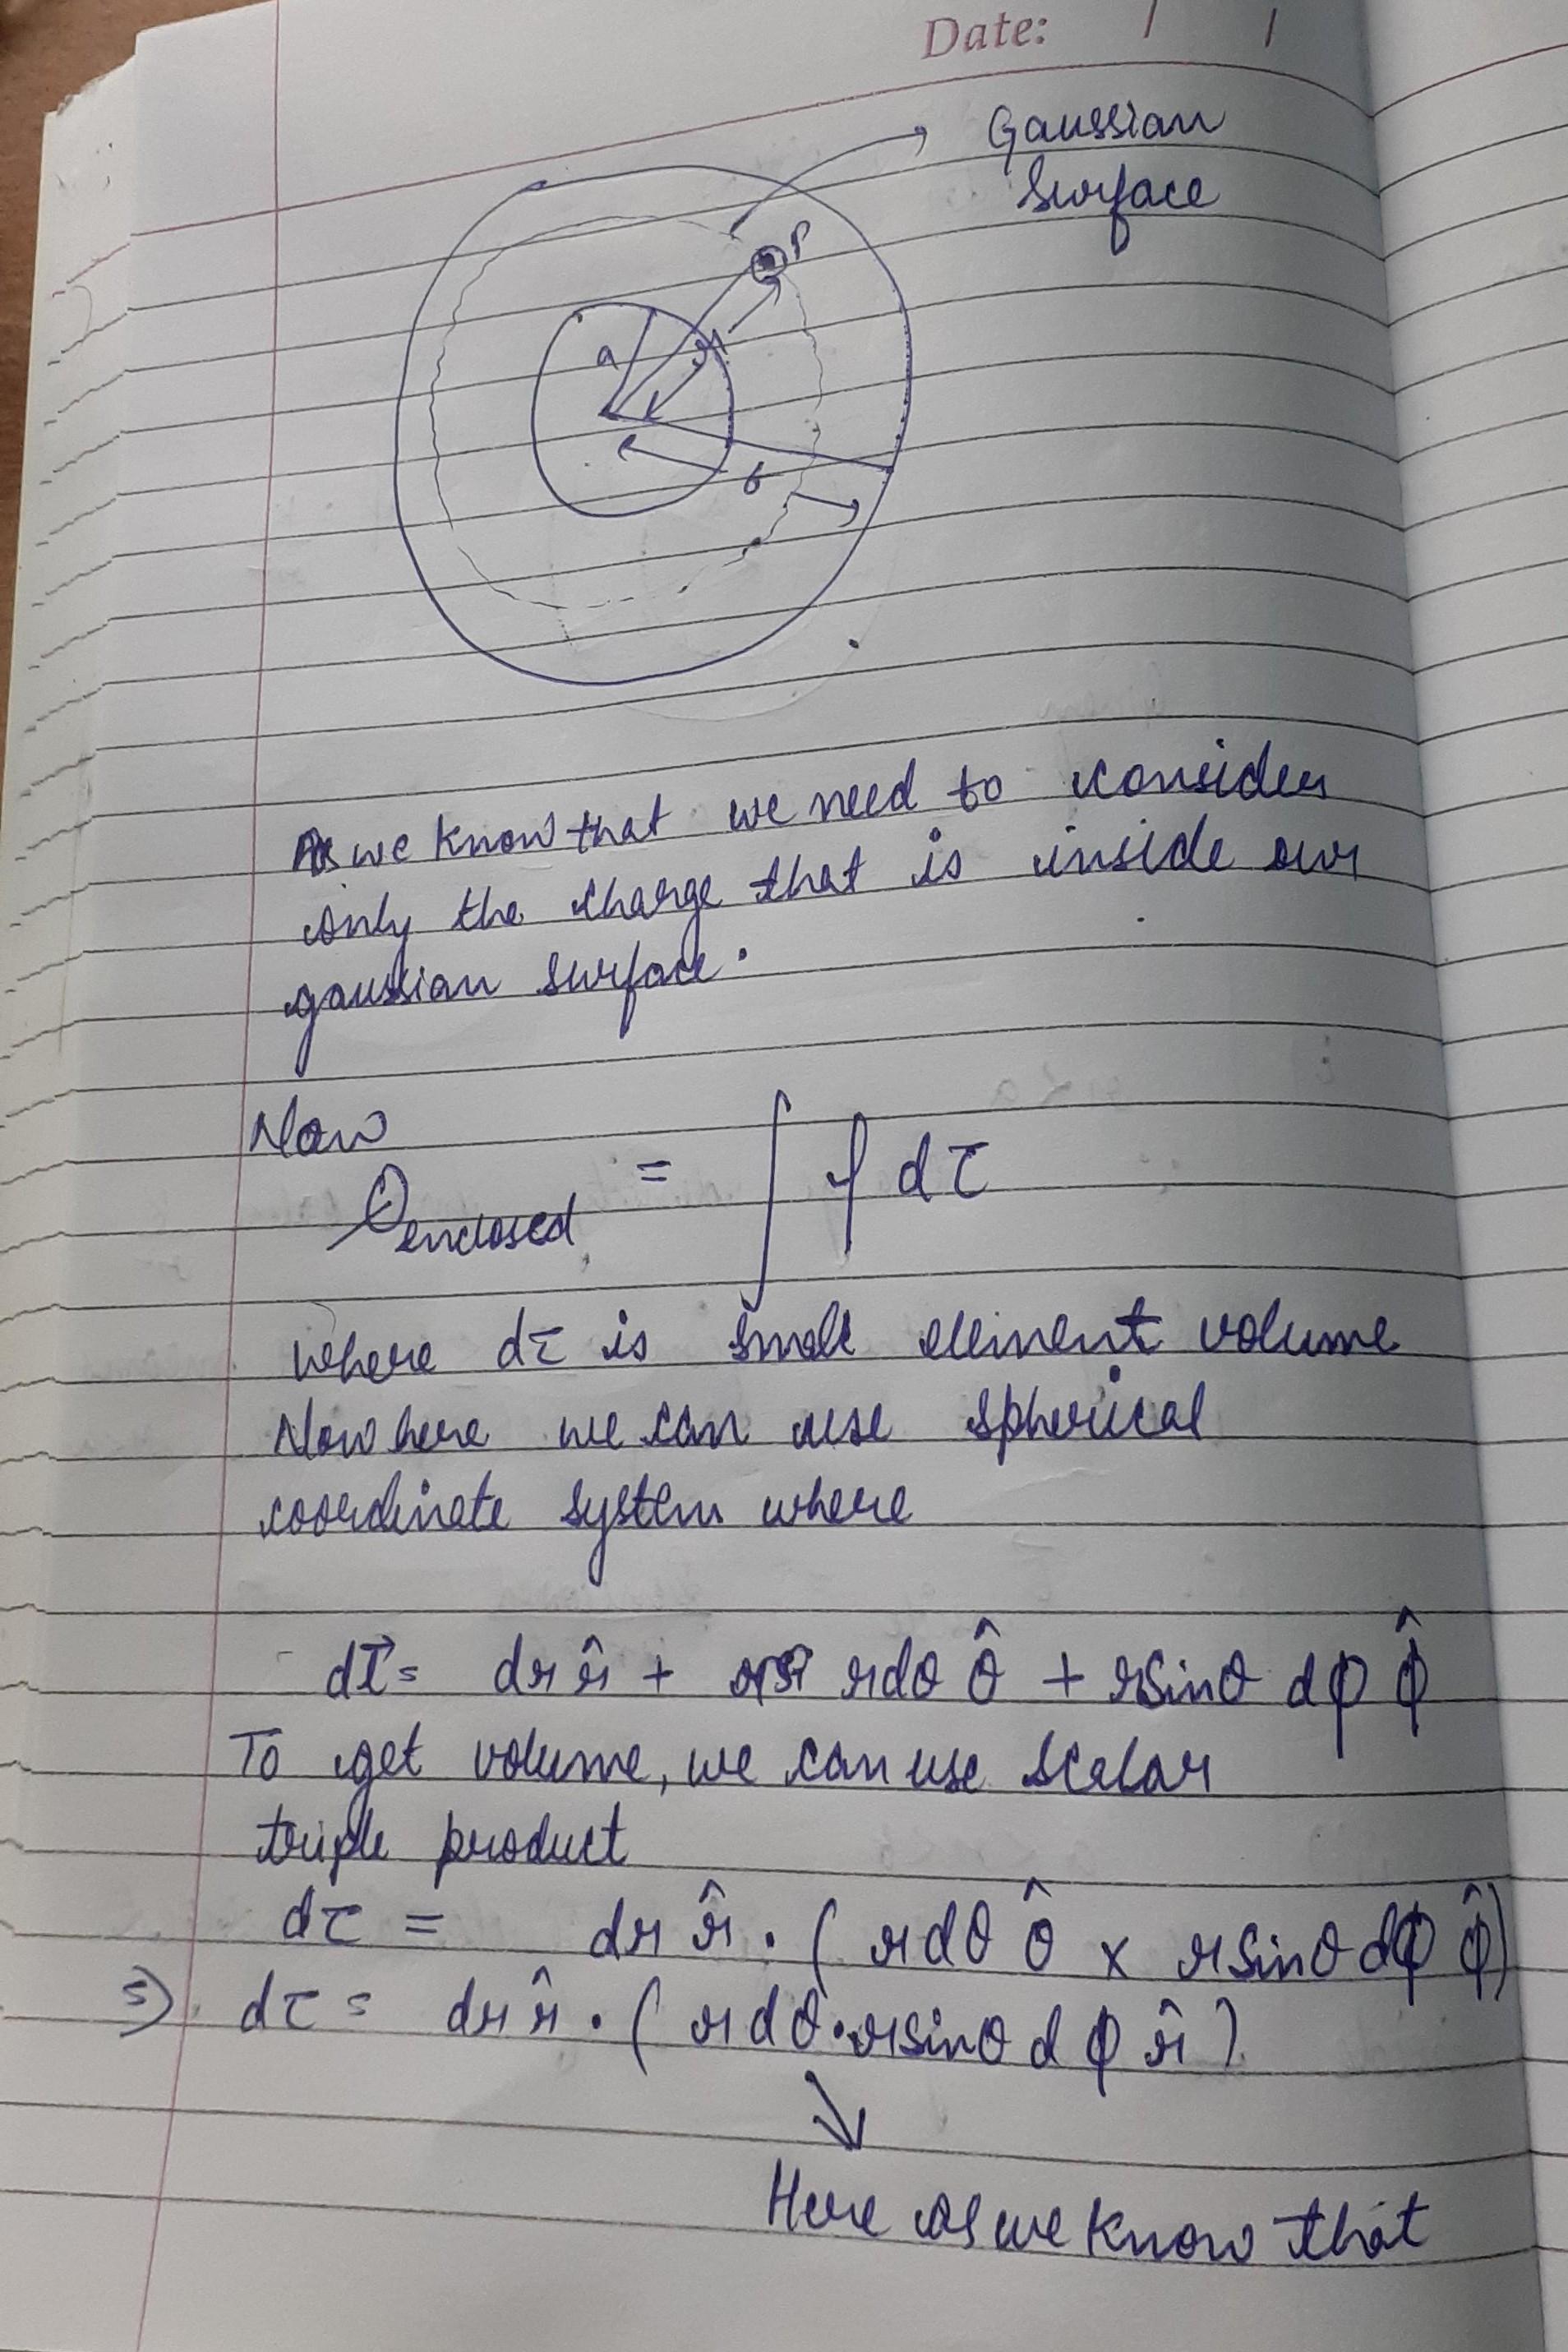 Date: / /
Gaussian
Surface
P
a
r
b
As we know that we need to consider
only the charge that is inside our
gaussian surface.
Now
Qenclosed = ∫ ρ dτ
where dτ is small element volume
Now here we can use spherical
coordinate system where
dl⃗ = dr r̂ + rdθ θ̂ + rsinθ dφ φ̂
To get volume, we can use scalar
triple product
dτ = dr r̂ . ( rdθ θ̂ × rsinθ dφ φ̂)
⇒ dτ = dr r̂ . ( rdθ.rsinθ dφ r̂ )
Here as we know that